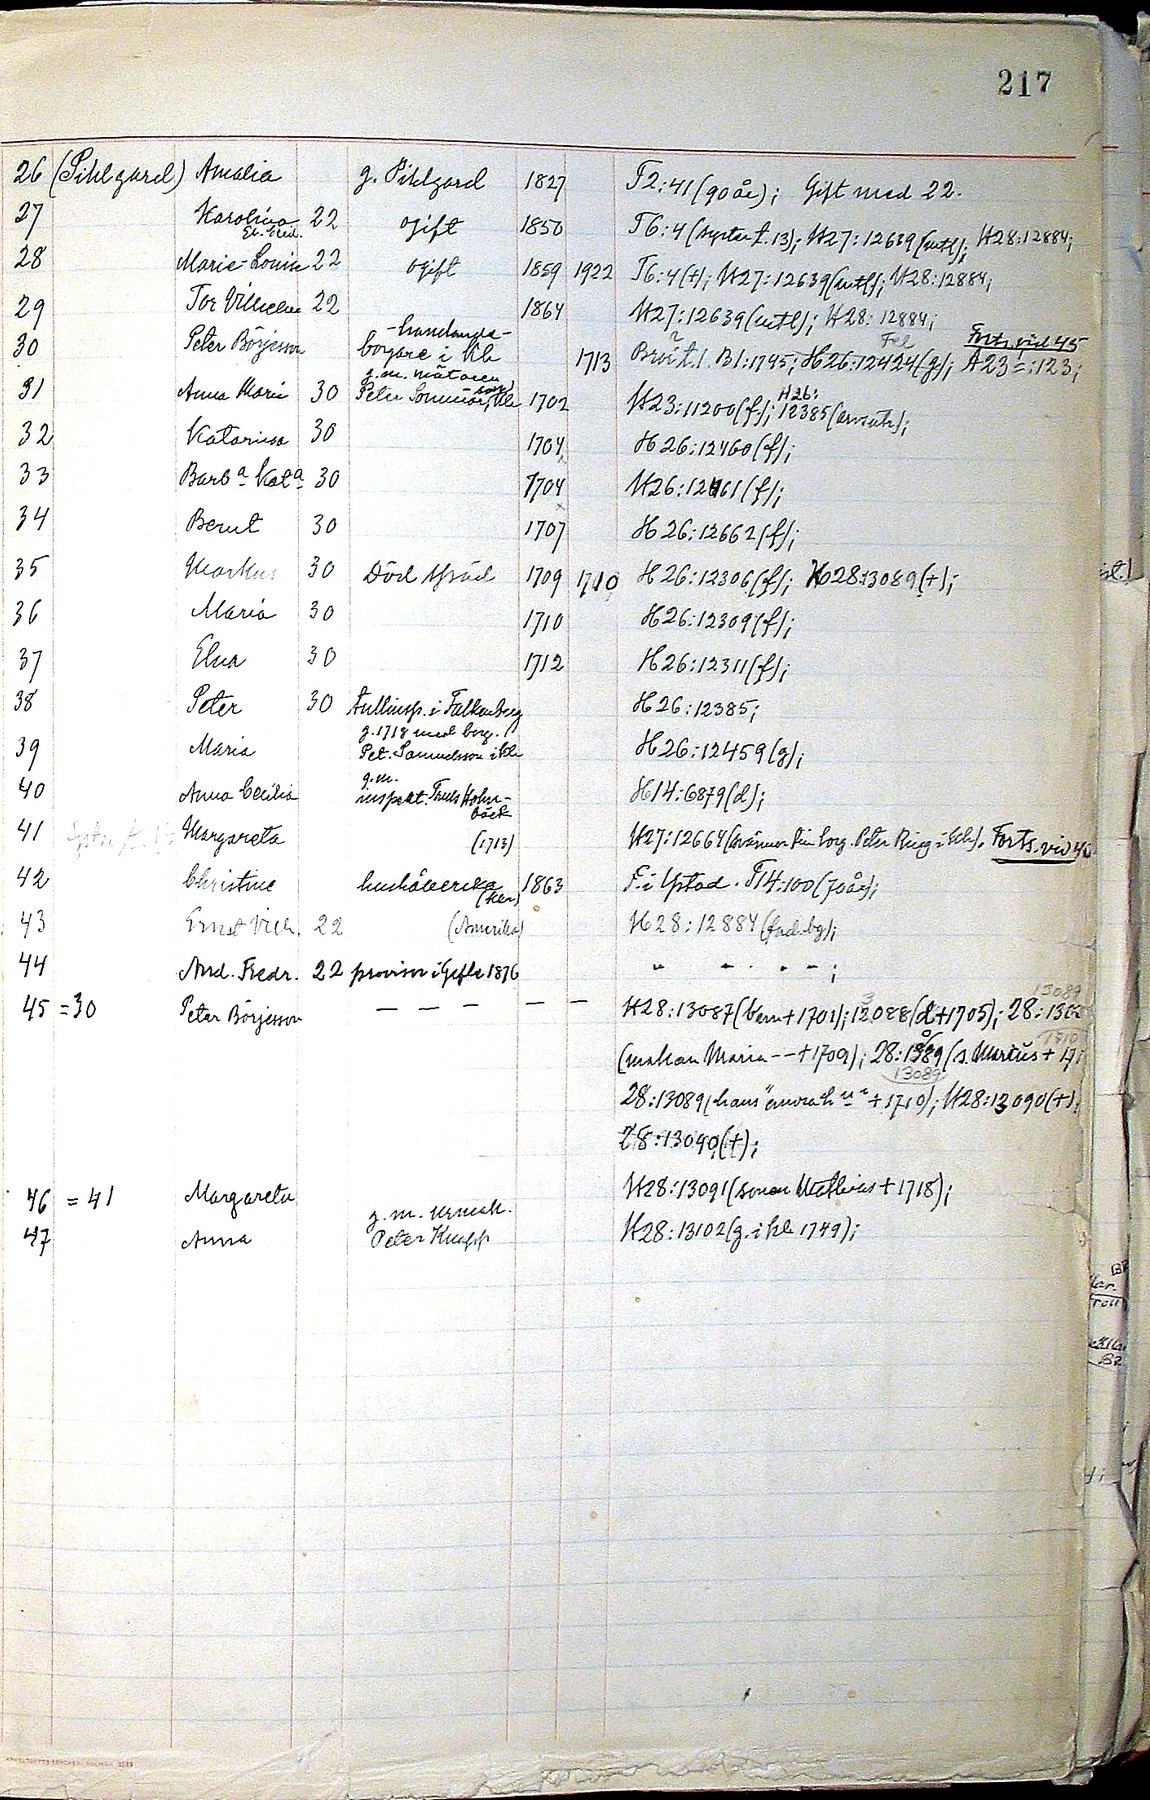 217
26 (Pihlgard) Amalia g. Pihlgard 1827 T2:41 (90 år); Gift med 22.
27 Karolina 22 ogift 1856 T6:4 (syster t. 13); H27:12639 (utfl); H28:12884;
28 Marie-Louise 22 ogift 1859 1922 T6:4 (+); H27:12639 (utfl); H28:12884;
29 Tor Vilhelm 22 1864 H27:12639 (utfl); H28:12884;
30 Peter Börjesson -handlande- borgare i Kla 1713 B1:1795; H26:12424 (g); A23=:123; Forts. vid 45
g.m. mätaren
31 Anna Marie 30 Peter 1702 H23:11200 (f); H26: 12385
32 Katarina 30 1704 H26:12460 (f);
33 Barbᵃ Katᵃ 30 1704 H26:12461 (f);
34 Bernt 30 1707 H26:12662 (f);
35 Markus 30 Död 1709 1710 H26:12306 (f); H28:13089 (+);
36 Maria 30 1710 H26:12309 (f);
37 Elna 30 1712 H26:12311 (f);
38 Peter 30 Tullinsp. i Falkenberg H26:12385;
g. 1718 med borg.
39 Maria Pet. Samuelsson i Kla H26:12459 (g);
g.m.
40 Anna Cecilia inspekt. Truls Holm- H14:6879 (d);
bäck
41 Margareta (1713) H27:12664 borg. Peter Ring i Forts. vid 46
42 Christine 1863 F. i Ystad. T14:100 (70 år);
43 Ernst Vilh. 22 (Amerika) H28:12884 (fad. bg);
44 And. Fredr. 22 provisor i Gefle 1876 " " " " ;
45 = 30 Peter Börjesson — — — — — H28:13087 (barn + 1701); 13088 (d + 1705); 28:
13089
(makan Maria -- + 1709); 28: (s. Markus +
13089
28:13089 (hans + 1710); H28:13090 (+);
28:13090 (+);
46 = 41 Margareta H28:13091 (sonen Mathias + 1718);
g. m. urmak.
47 Anna Peter Knapp H28:13102 (g. i Kla 1749);